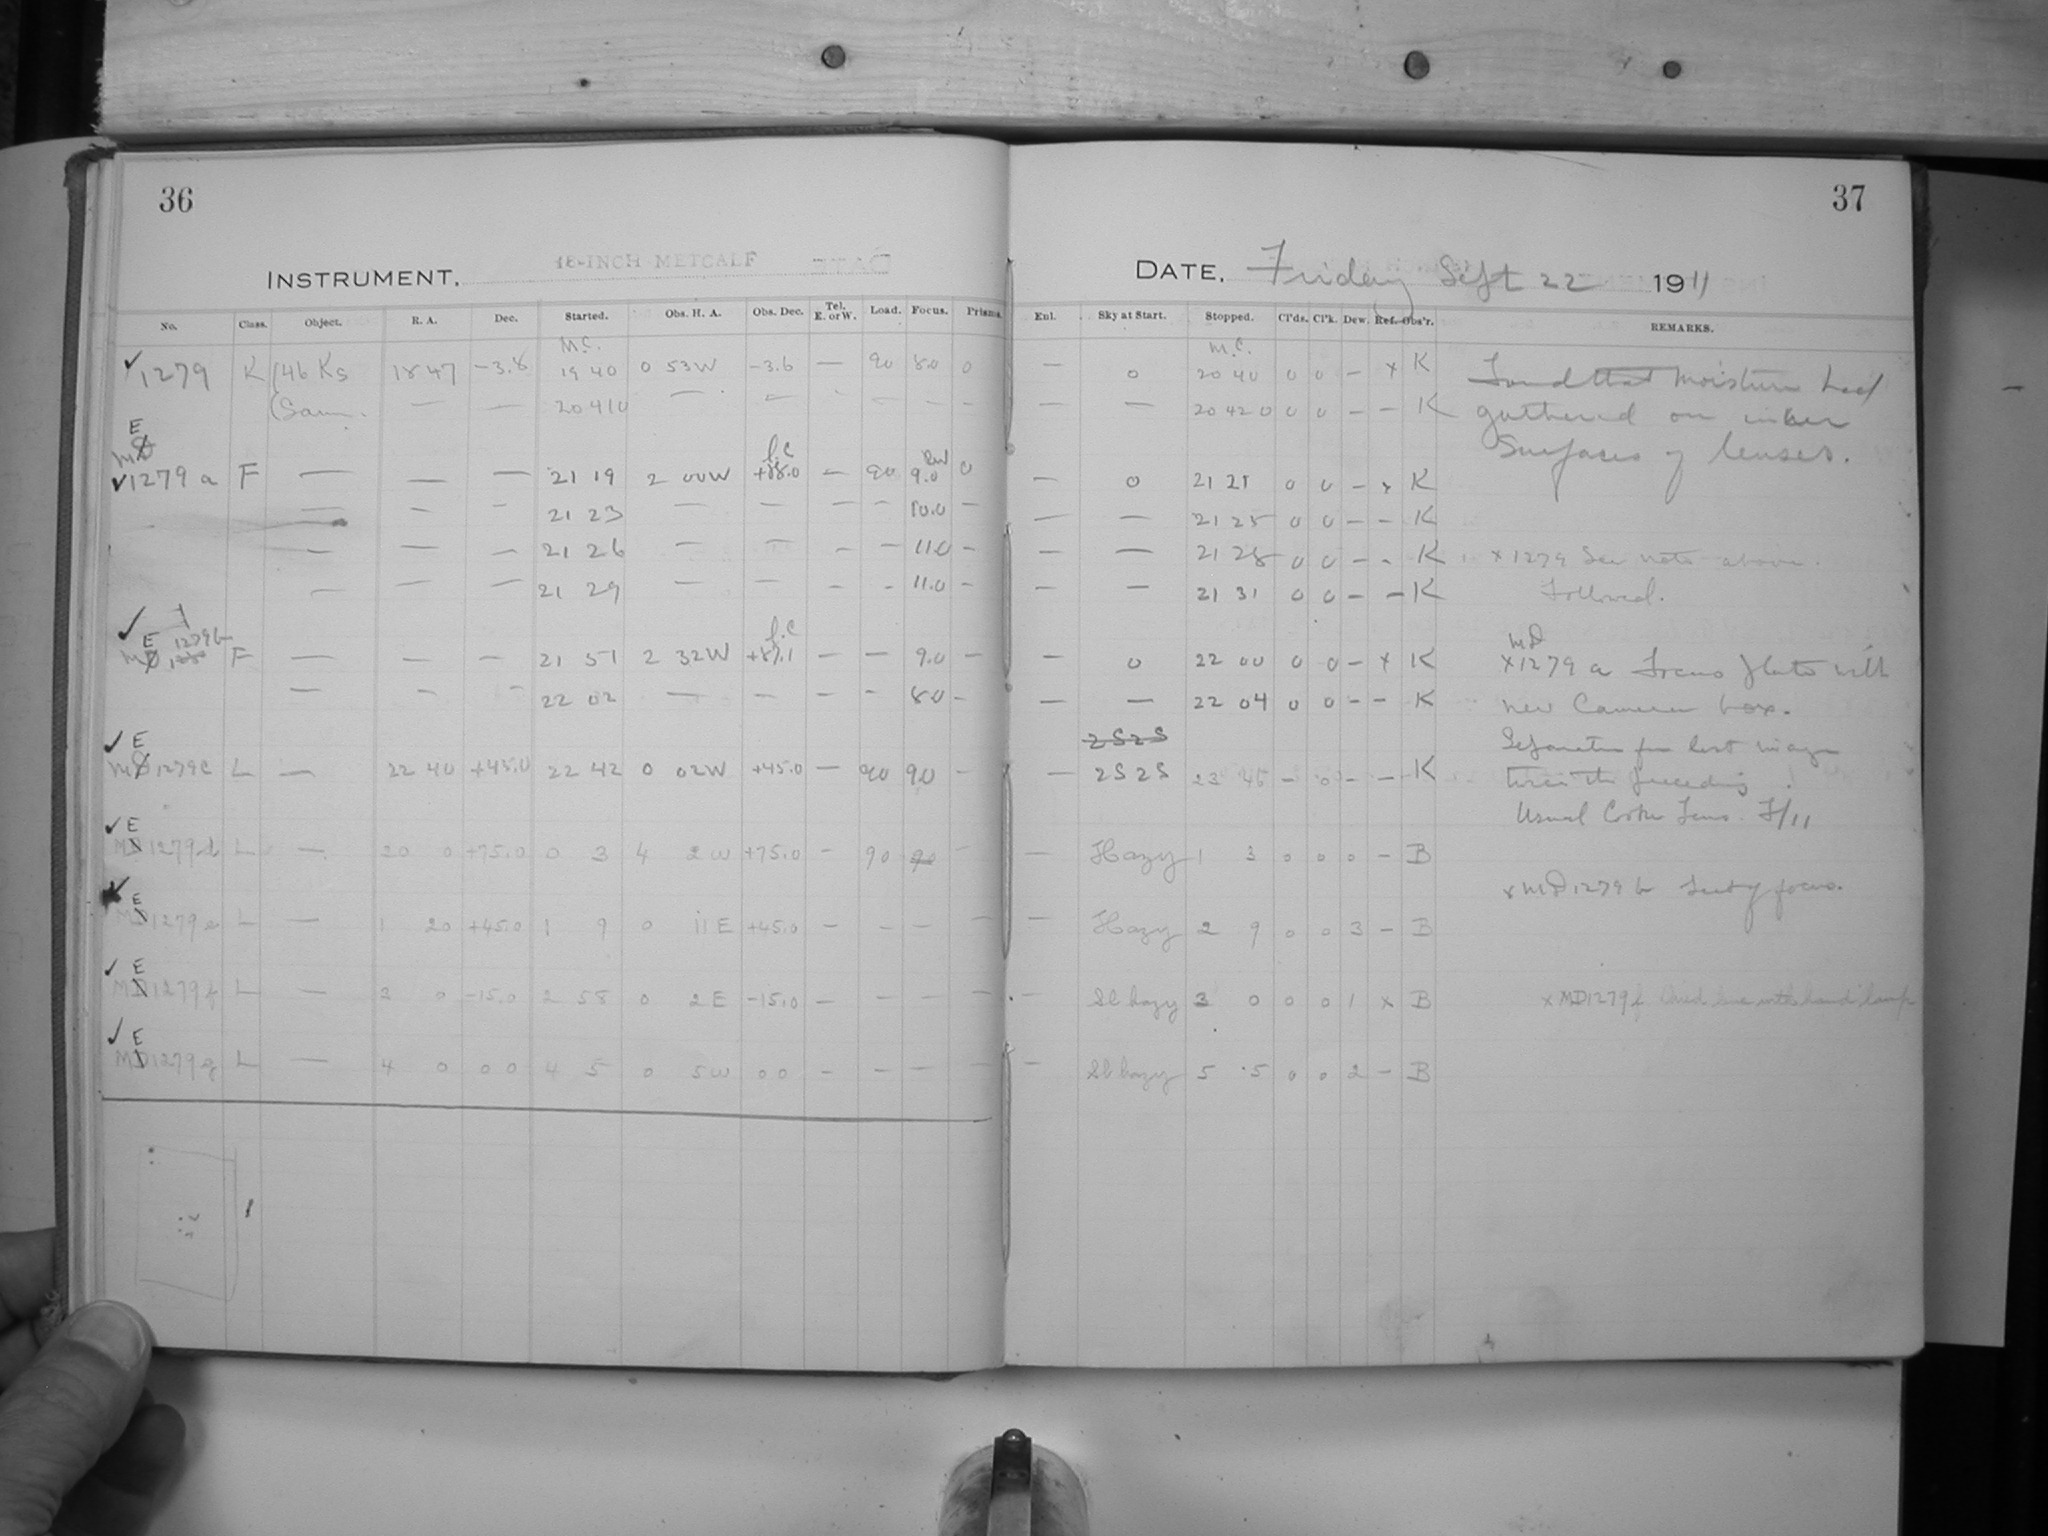 36
INSTRUMENT. 16-INCH METCALF
No. Class. Object. R. A. Dec. Started. Obs. H. A. Obs. Dec. Tel. E. or W. Load. Focus. Prisms.
M.C.
1279 K (46 Ks 18 47 -3.8 19 40 0 53W -3.6 — 90 8.0 0
(Sam. — — 20 41 0 — — - — — —
E
1279 a F — — — 21 19 2 00W +88.0 — 90 9.0 0
— — — 21 23 — — — — 10.0 —
— — — 21 26 — — - — 11.0 —
— — — 21 29 — — - - 11.0 —
E 1279 b
F — — — 21 51 2 32W +87.1 — — 9.0 —
— — — 22 02 — — — — 8.0 —
E
MD 1279c L — 22 40 +45.0 22 42 0 02W +45.0 — 90 9.0 —
E
MD 1279d L — 20 0 +75.0 0 3 4 2W +75.0 — 90 90 —
E
MD 1279e L — 1 20 +45.0 1 9 0 11E +45.0 — - — —
E
MD 1279f L — 3 0 -15.0 2 58 0 2E -15.0 — — — —
E
MD 1279g L — 4 0 0 0 4 5 0 5W 0 0 - — — —
37
DATE. Friday Sept 22 1911
Enl. Sky at Start. Stopped. Cl'ds. Cl'k. Dew. Ref. Obs'r. REMARKS.
M.C.
— 0 20 40 0 0 — x K Found that moisture had
— — 20 42 0 0 0 — — K gathered on inner
surfaces of lenses.
— 0 21 21 0 0 — x K
— — 21 25 0 0 — — K
— — 21 28 0 0 — - K x 1279 See note above.
— — 21 31 0 0 — — K Followed.
MD
— 0 22 00 0 0 — x K x1279 a Focus plate with
— — 22 04 0 0 — — K new Camera box.
2S2S Separation for last image
— 2S2S 23 45 — 0 — — K twice the preceding
Usual Cooke Lens. F/11
— Hazy 1 3 0 0 0 — B
x MD 1279 b Test of focus.
— Hazy 2 9 0 0 3 — B
— Sl hazy 3 0 0 0 1 x B x MD1279f
— Sl hazy 5 5 0 0 2 — B